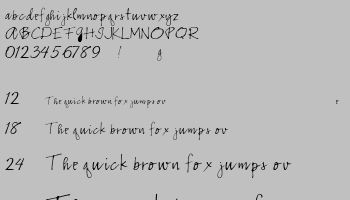 abcdefghijklmnopqrstuvwxyz
ABCDEFGHIJKLMNOPQR
0123456789 ! g
12 The quick brown fox jumps ov r
18 The quick brown fox jumps ov
24 The quick brown fox jumps ov